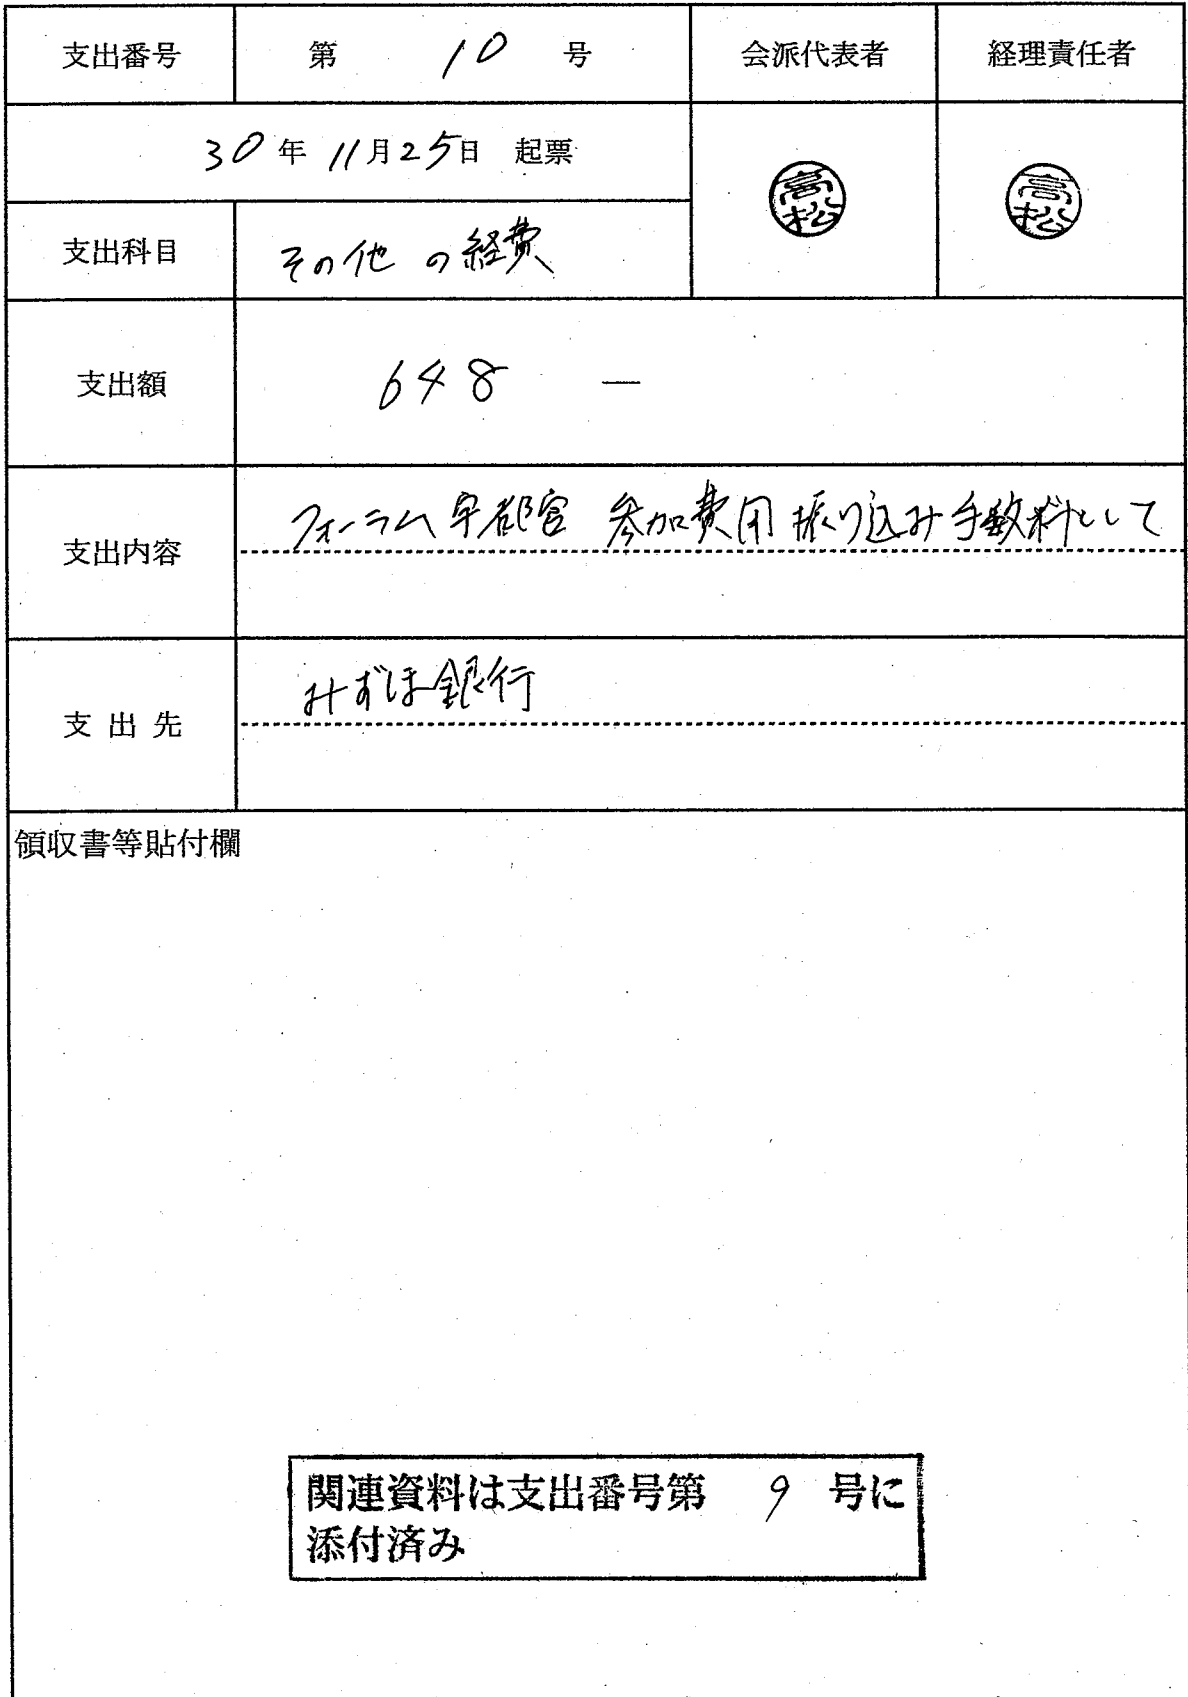 支出番号 第 10 号 会派代表者 経理責任者
30年 11月25日 起票
高松 高松
支出科目 その他の経費
支出額 648 —
支出内容 フォーラム宇都宮 参加費用振り込み手数料として
支出先 みずほ銀行
領収書等貼付欄
関連資料は支出番号第 9 号に
添付済み